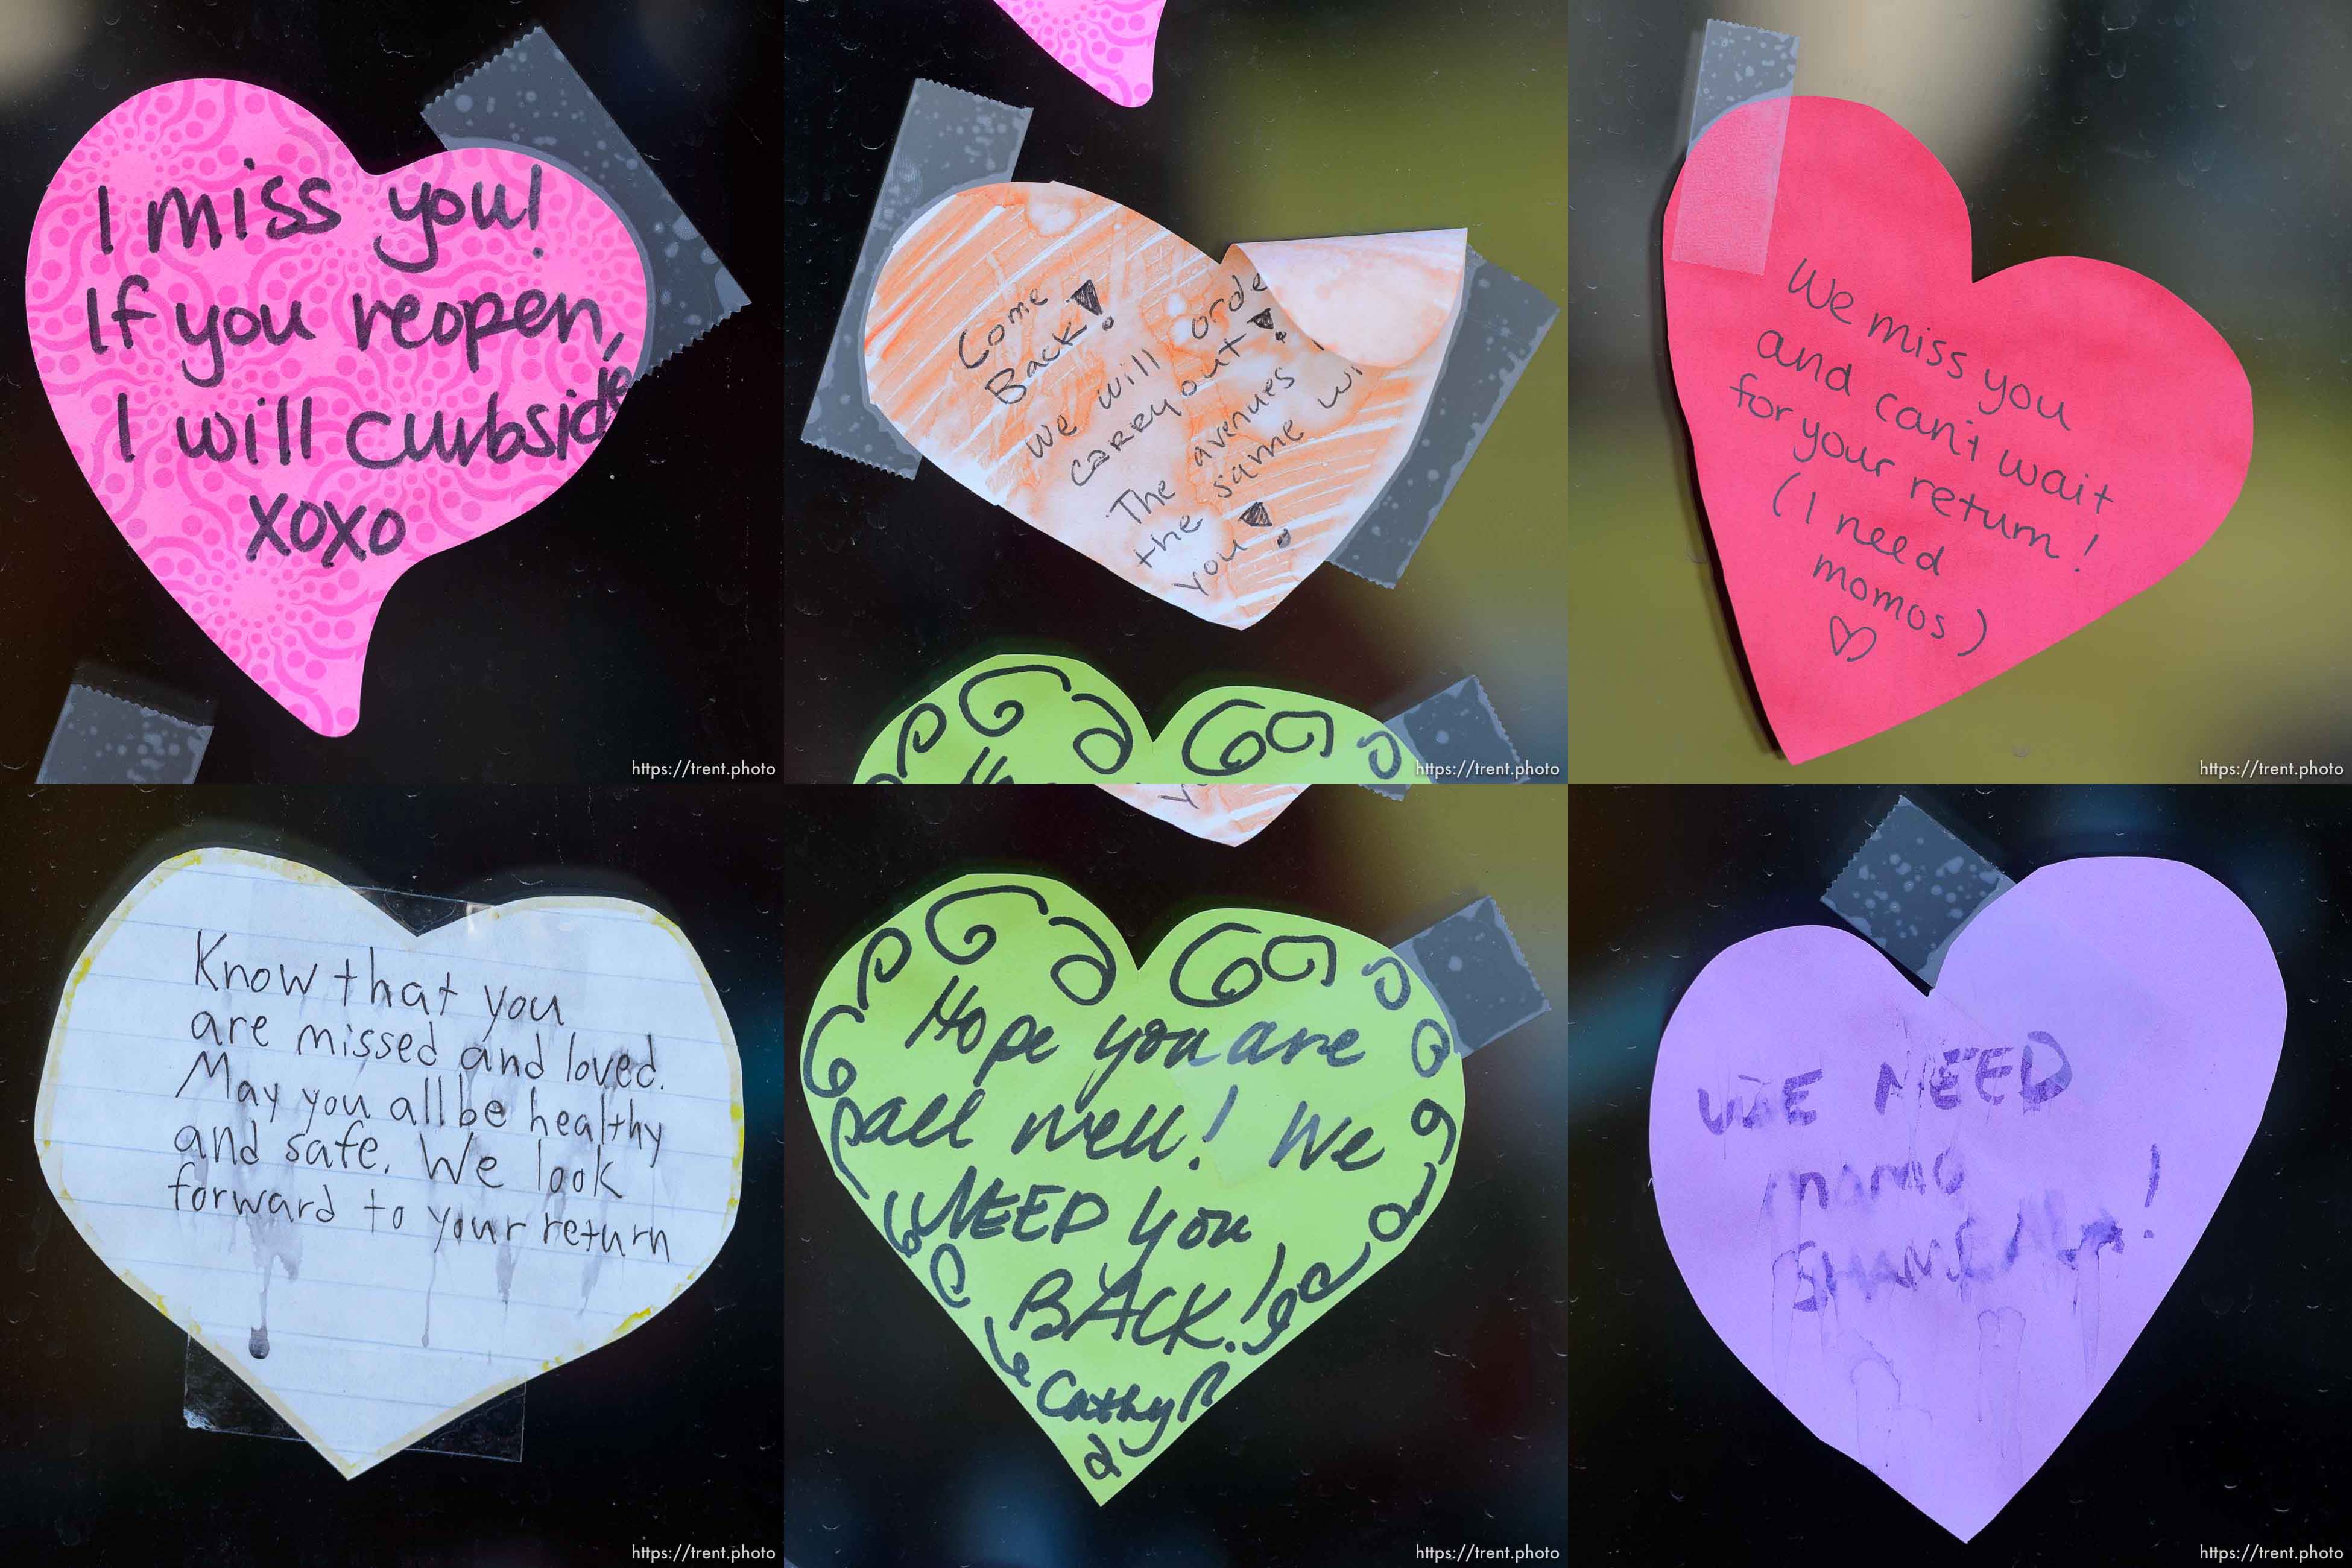 I miss you!
If you reopen,
I will curbside
xoxo
https://trent.photo
Come
Back!
We will orde
carry out!
The avenues
the same wi
you!
https://trent.photo
We miss you
and can't wait
for your return!
(I need
momos)
https://trent.photo
Know that you
are missed and loved.
May you all be healthy
and safe. We look
forward to your return
https://trent.photo
Hope you are
all well! We
NEED you
BACK!
Cathy
https://trent.photo
WE NEED
momo
!
https://trent.photo